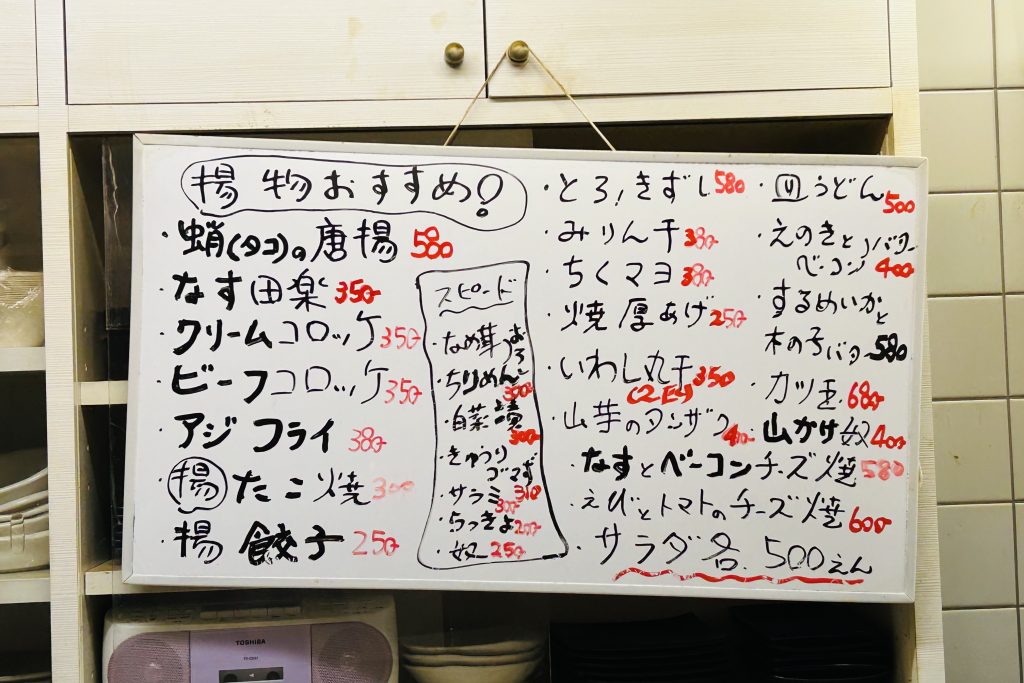 揚物おすすめ!
・蛸(タコ)の唐揚 580
・なす田楽 350
・クリームコロッケ 350
・ビーフコロッケ 350
・アジフライ 380
・揚たこ焼 300
・揚餃子 250
スピード
・なめ茸おろし
・ちりめん
・白菜漬 300
・きゅうりゴマあえ
・サラミ 300
・らっきょ 200
・奴 250
・とろ!きずし 580
・みりん干 380
・ちくマヨ 380
・焼厚あげ 250
・いわし丸干 350
(2匹)
・山芋のタンザク 400
・なすとベーコンチーズ焼 580
・えびとトマトのチーズ焼 600
・サラダ各 500えん
・うどん 500
・えのきとベーコンバター 400
・するめいかと
木の子バター 580
・カツ玉 680
・山かけ奴 400
TOSHIBA